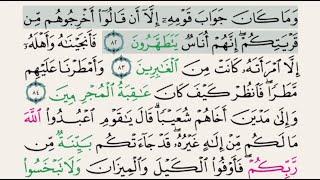 وَمَا كَانَ جَوَابَ قَوْمِهِۦٓ إِلَّآ أَن قَالُوٓا۟ أَخْرِجُوهُم مِّن
قَرْيَتِكُمْ ۖ إِنَّهُمْ أُنَاسٌ يَتَطَهَّرُونَ ٨٢ فَأَنجَيْنَٰهُ وَأَهْلَهُۥٓ
إِلَّا ٱمْرَأَتَهُۥ كَانَتْ مِنَ ٱلْغَٰبِرِينَ ٨٣ وَأَمْطَرْنَا عَلَيْهِم
مَّطَرًا ۖ فَٱنظُرْ كَيْفَ كَانَ عَٰقِبَةُ ٱلْمُجْرِمِينَ ٨٤
وَإِلَىٰ مَدْيَنَ أَخَاهُمْ شُعَيْبًا ۗ قَالَ يَٰقَوْمِ ٱعْبُدُوا۟ ٱللَّهَ
مَا لَكُم مِّنْ إِلَٰهٍ غَيْرُهُۥ ۖ قَدْ جَآءَتْكُم بَيِّنَةٌ مِّن
رَّبِّكُمْ ۖ فَأَوْفُوا۟ ٱلْكَيْلَ وَٱلْمِيزَانَ وَلَا تَبْخَسُوا۟